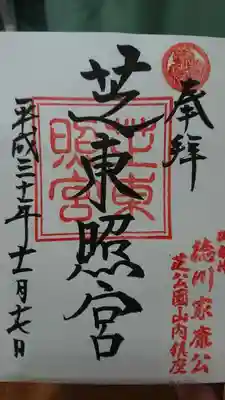 奉拝
徳川家康公
芝公園山内鎮座
芝東照宮
芝東照宮
平成三十年十一月十七日